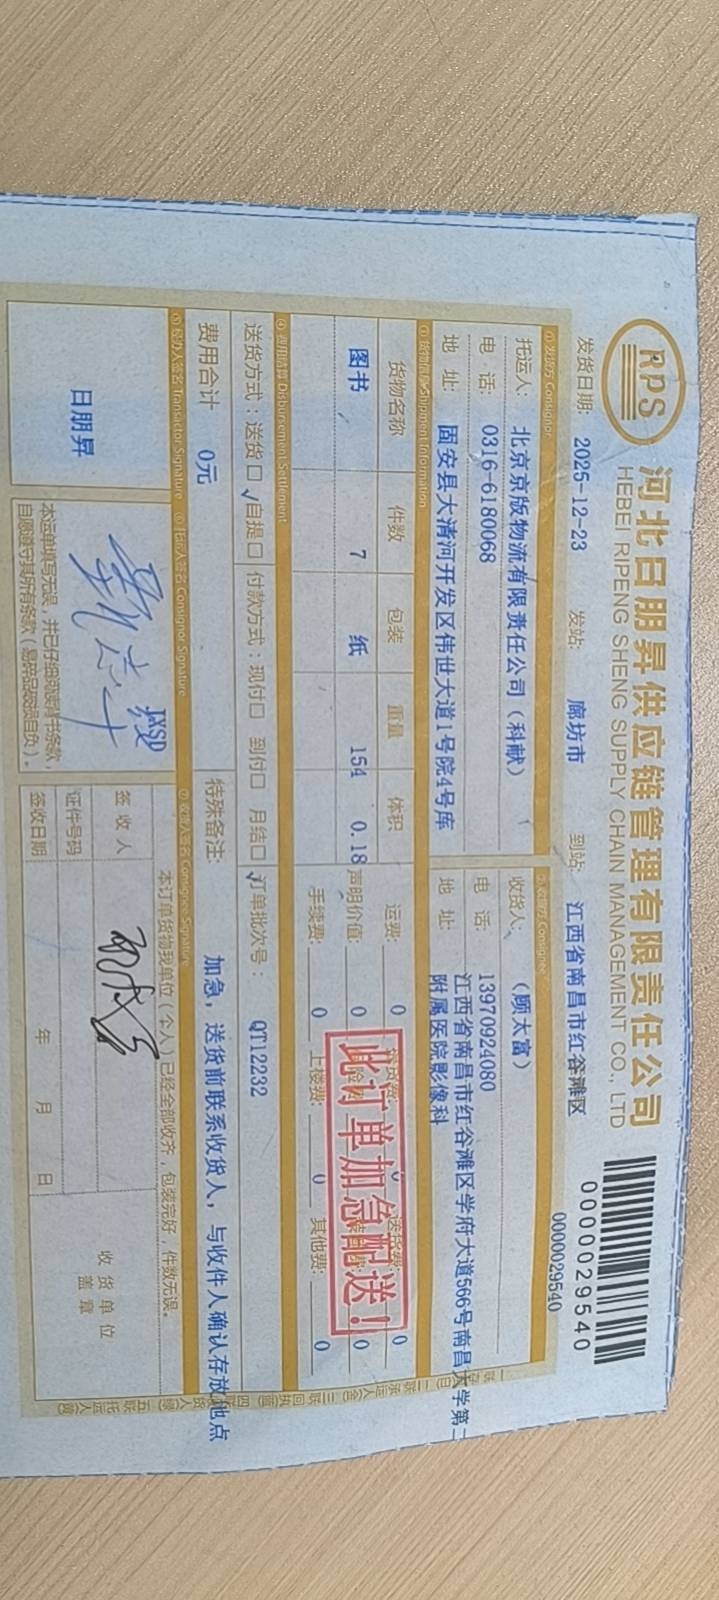 RPS
河北日朋昇供应链管理有限责任公司
HEBEI RIPENG SHENG SUPPLY CHAIN MANAGEMENT CO., LTD
0000029540
0000029540
发货日期: 2025-12-23 发站: 廊坊市 到站: 江西省南昌市红谷滩区
①发货方 Consignor
②收货方 Consignee
托运人: 北京京版物流有限责任公司(科献)
收货人: (顾太富)
电 话: 0316-6180068
电 话: 13970924080
地 址: 固安县大清河开发区伟世大道1号院4号库
地 址: 江西省南昌市红谷滩区学府大道566号南昌大学第二
附属医院影像科
③货物信息 Shipment Information
货物名称 件数 包装 重量 体积
图书 7 纸 154 0.18
运费: 0 送货费: 0
声明价值: 0 0
手续费: 0 上楼费: 0 其他费: 0
此订单加急配送!
④费用结算 Disbursement Settlement
送货方式:送货□ √自提□ 付款方式:现付□ 到付□ 月结□√ 订单批次号: QT12232
费用合计 0元
特殊备注: 加急,送货前联系收货人,与收件人确认存放地点
⑤经办人签名 Transactor Signature
⑥托运人签名 Consignor Signature
⑦收货人签名 Consignee Signature
日朋昇
JXSD
本运单填写无误,并已仔细阅读背书条款,
自愿遵守其所有条款(易碎品破损自负)。
本订单货物我单位(个人)已经全部收齐,包装完好,件数无误。
签 收 人
证件号码
签收日期 年 月 日
收 货 单 位
盖 章